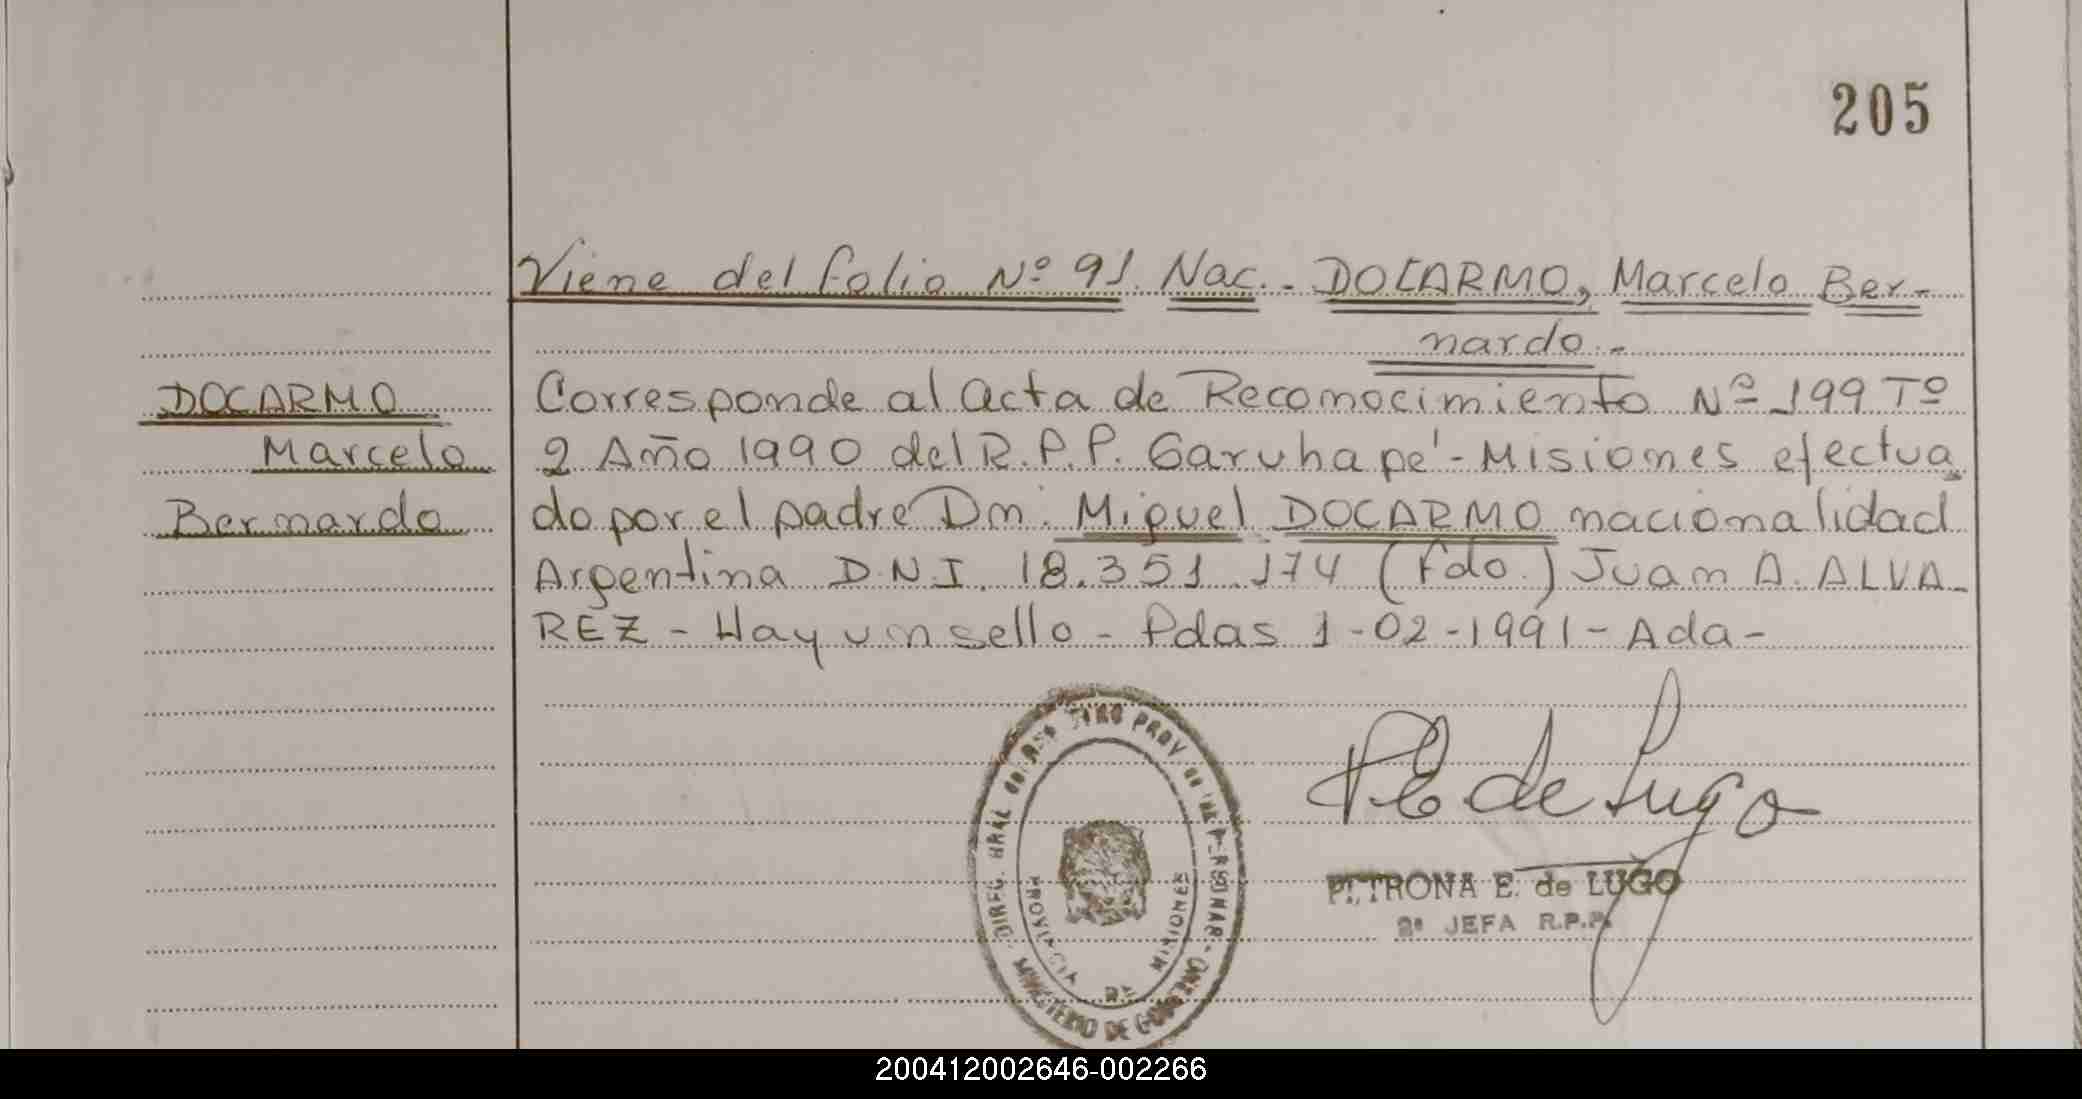 205
Viene del folio Nº 91. Nac.- DOCARMO, Marcelo Ber-
nardo.-
DOCARMO
Marcelo
Bernardo
Corresponde al acta de Reconocimiento Nº 199 Tº
2 Año 1990 del R.P.P. Garuhapé - Misiones efectua
do por el padre Dn. Miguel DOCARMO nacionalidad
Argentina D.N.I. 18.351.174 (Fdo.) Juan A. ALVA-
REZ - Hay un sello - Pdas 1-02-1991 - Ada -
PROV.
PROVINCIA DE MISIONES
MINISTERIO DE
PE de Lugo
PETRONA E. de LUGO
2º JEFA R.P.P.
200412002646-002266